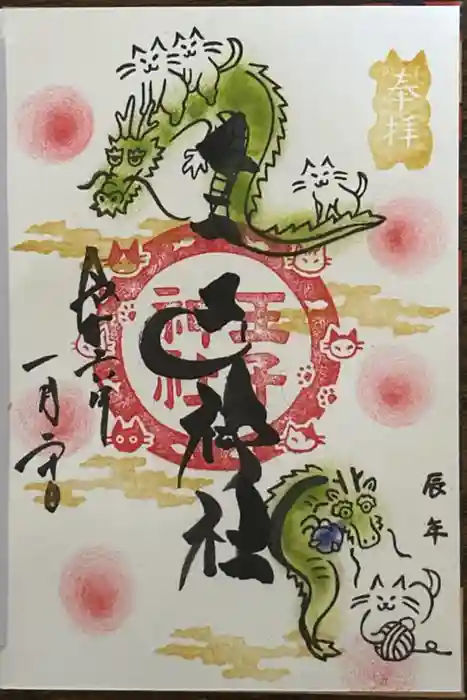 奉拝
辰年
王子神社
王子
神社
令和六年
一月